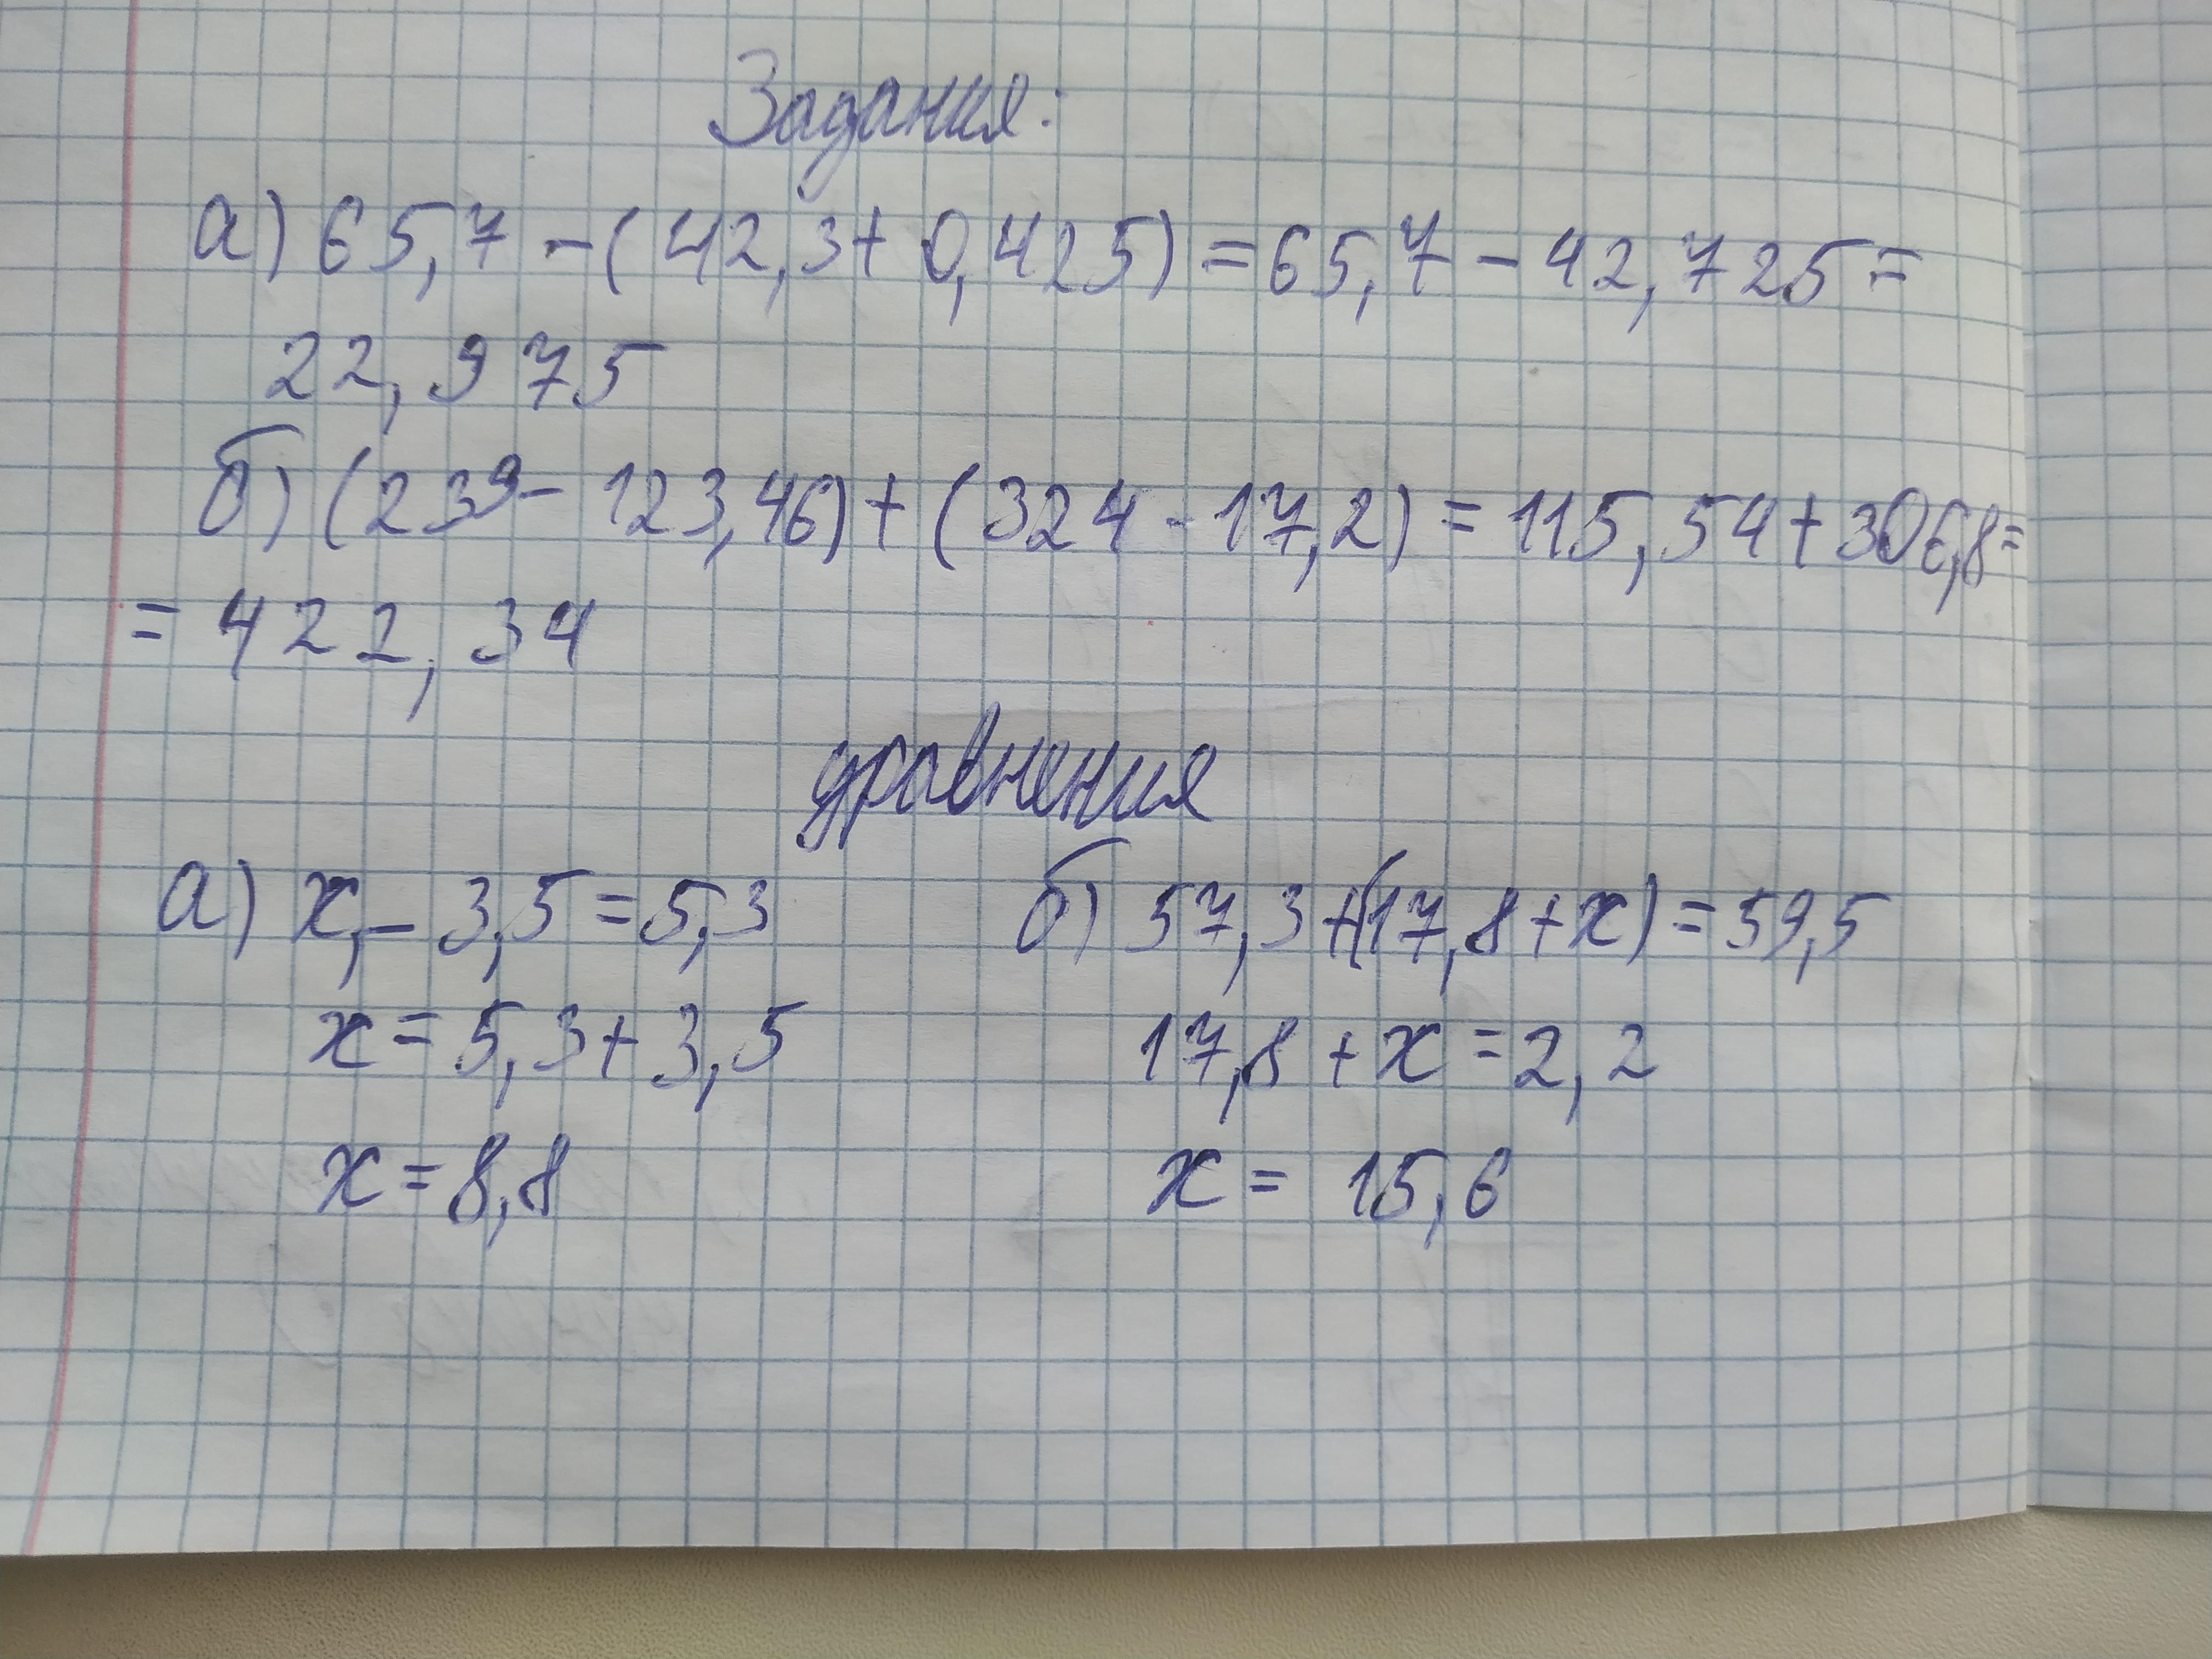 Задания:
а) 65,7 - (42,3 + 0,425) = 65,7 - 42,725 =
22,975
б) (239 - 123,46) + (324 - 17,2) = 115,54 + 306,8 =
= 422,34
уравнения
а) x, - 3,5 = 5,3
б) 57,3 + (17,8 + x) = 59,5
x = 5,3 + 3,5
17,8 + x = 2,2
x = 8,8
x = 15,6